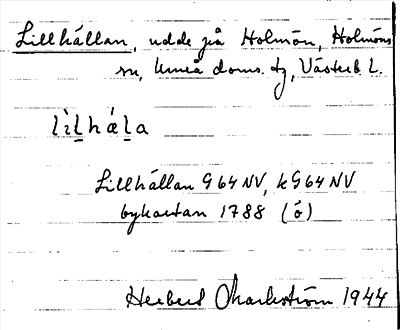 Lillhällan, udde på Holmön, Holmöns
sn, Umeå doms. tg, Västerb. l.
lìl̲háḷa
Lillhällan G 64 NV, k G 64 NV
bykartan 1788 (ö)
Herbert Markström 1944